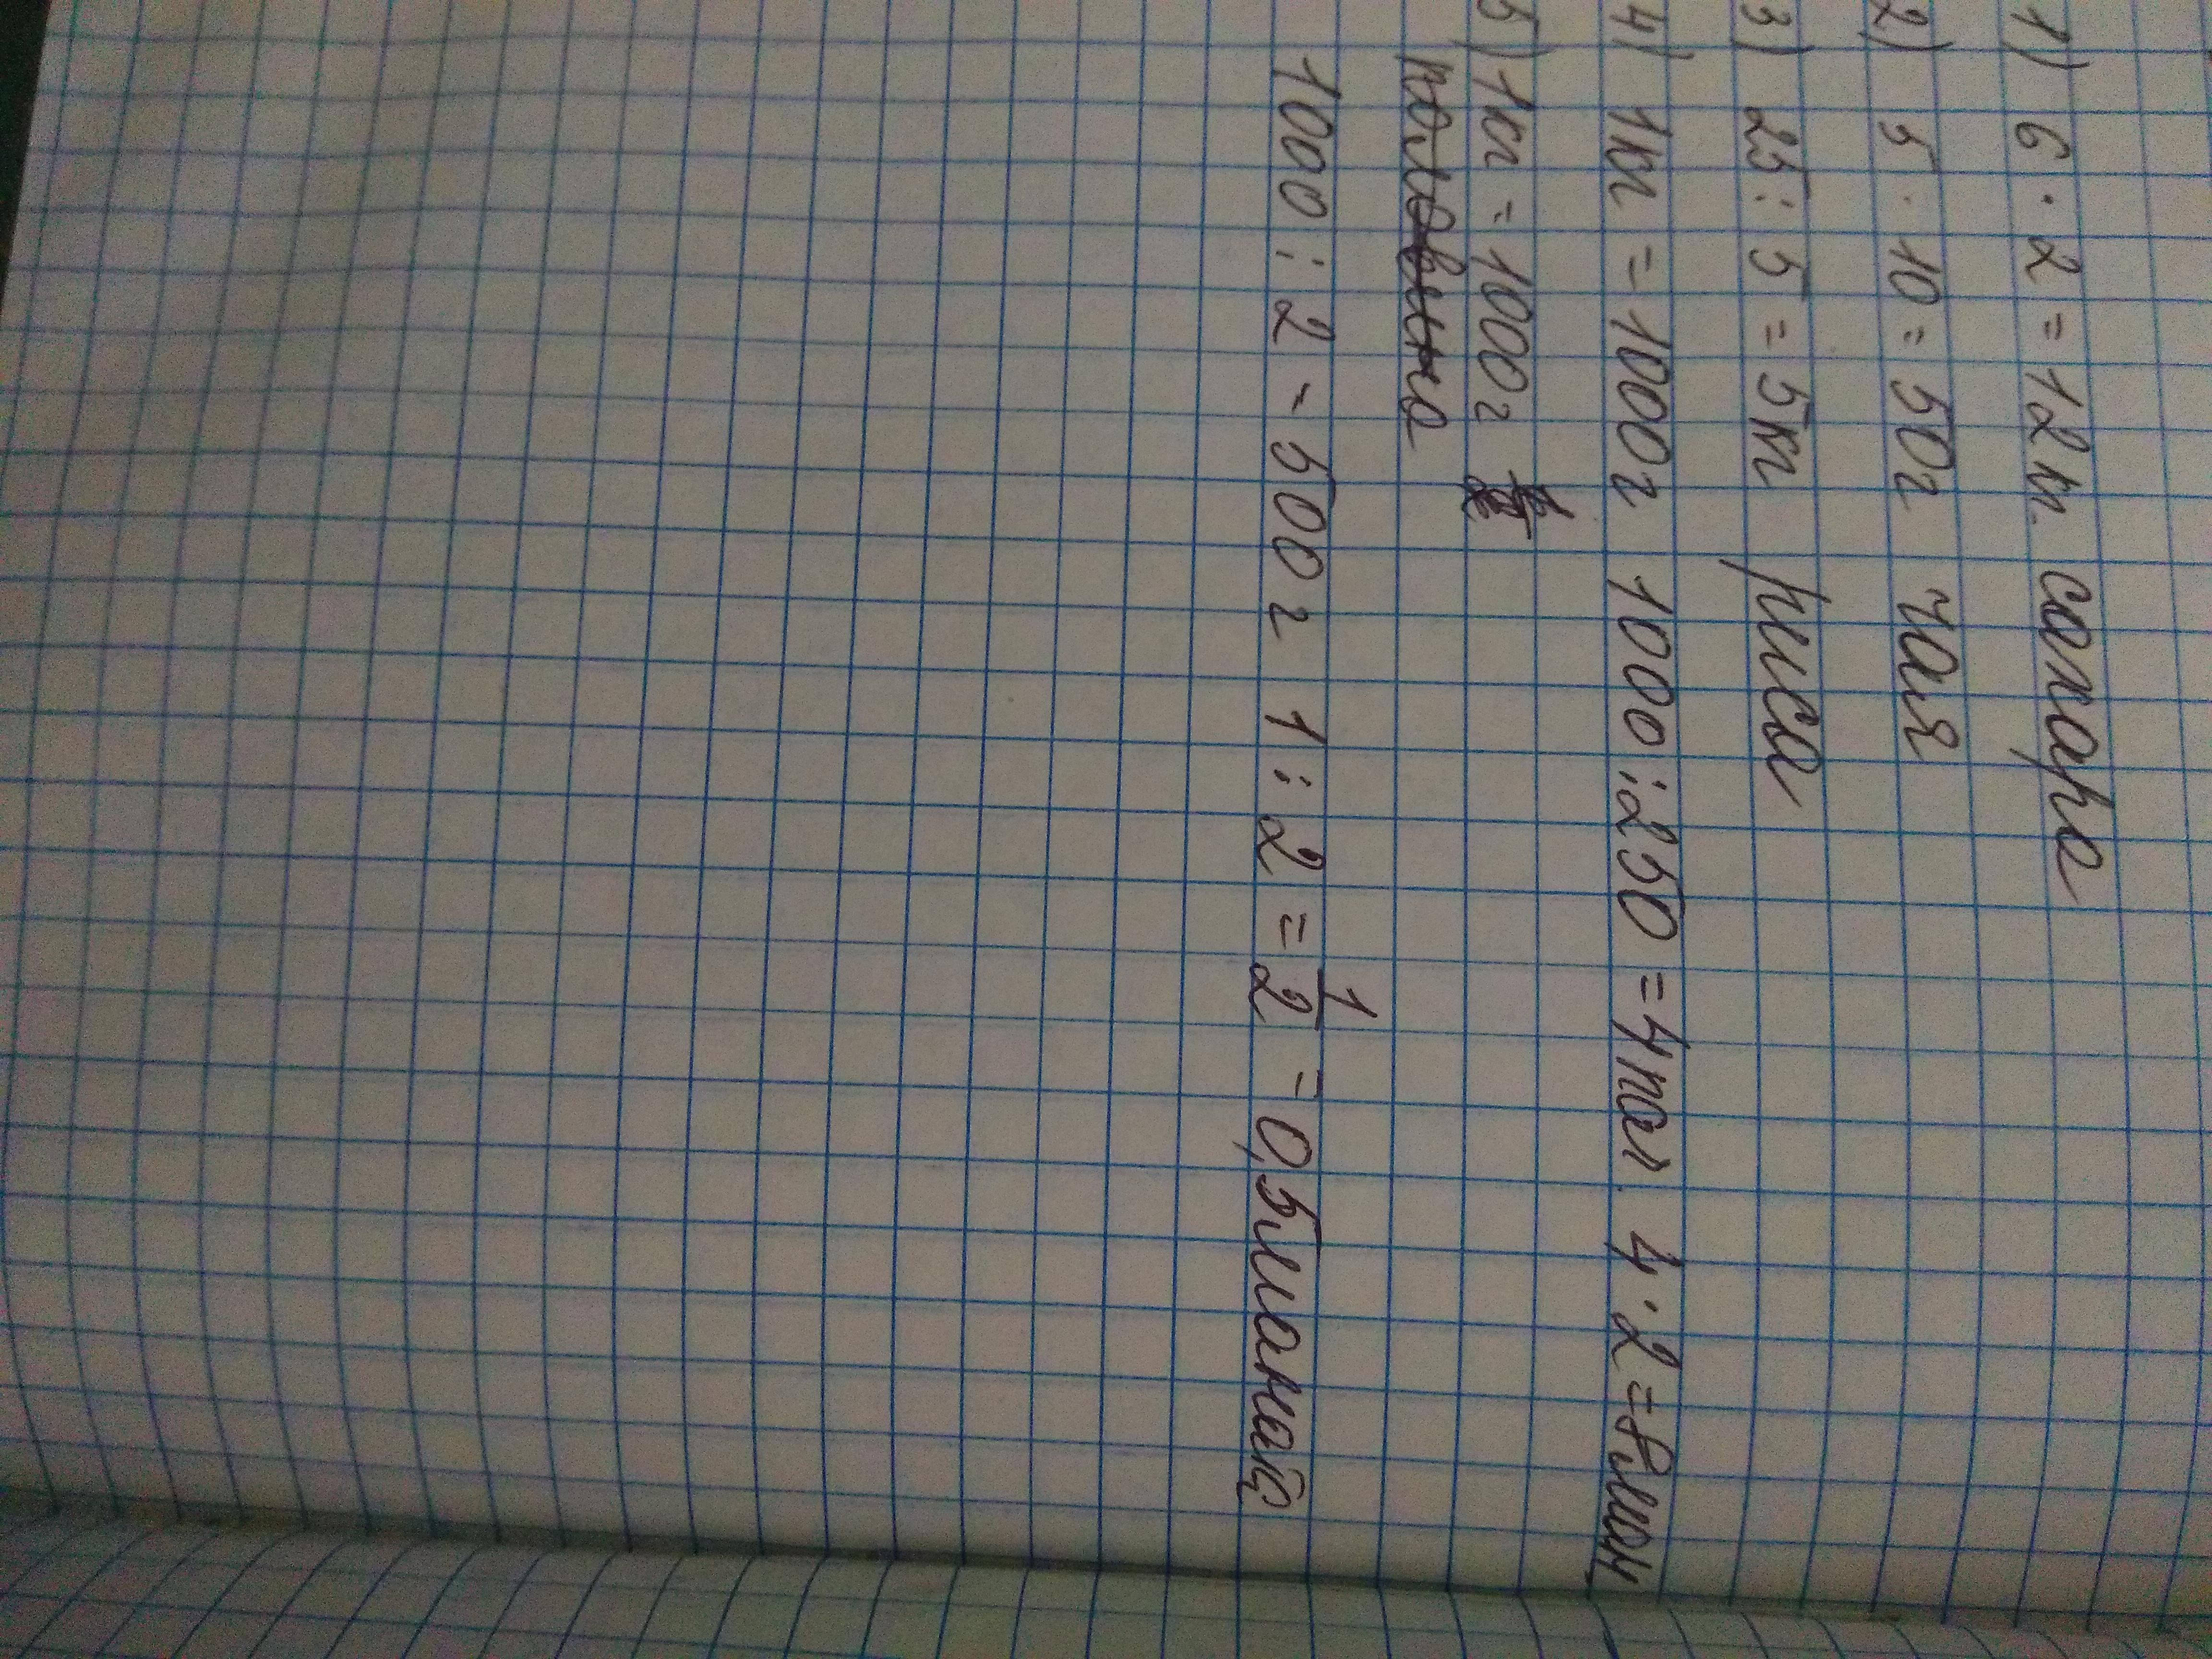 1) 6 · 2 = 12 к. сахара
2) 5 · 10 = 50г чая
3) 25 : 5 = 5кг риса
4) 1кг = 1000г 1000 : 250 = 4 пог. 4 · 2 = 8 манц
5) 1кг = 1000г
половина
1000 : 2 = 500 г 1 : 2 = 1/2 = 0,5